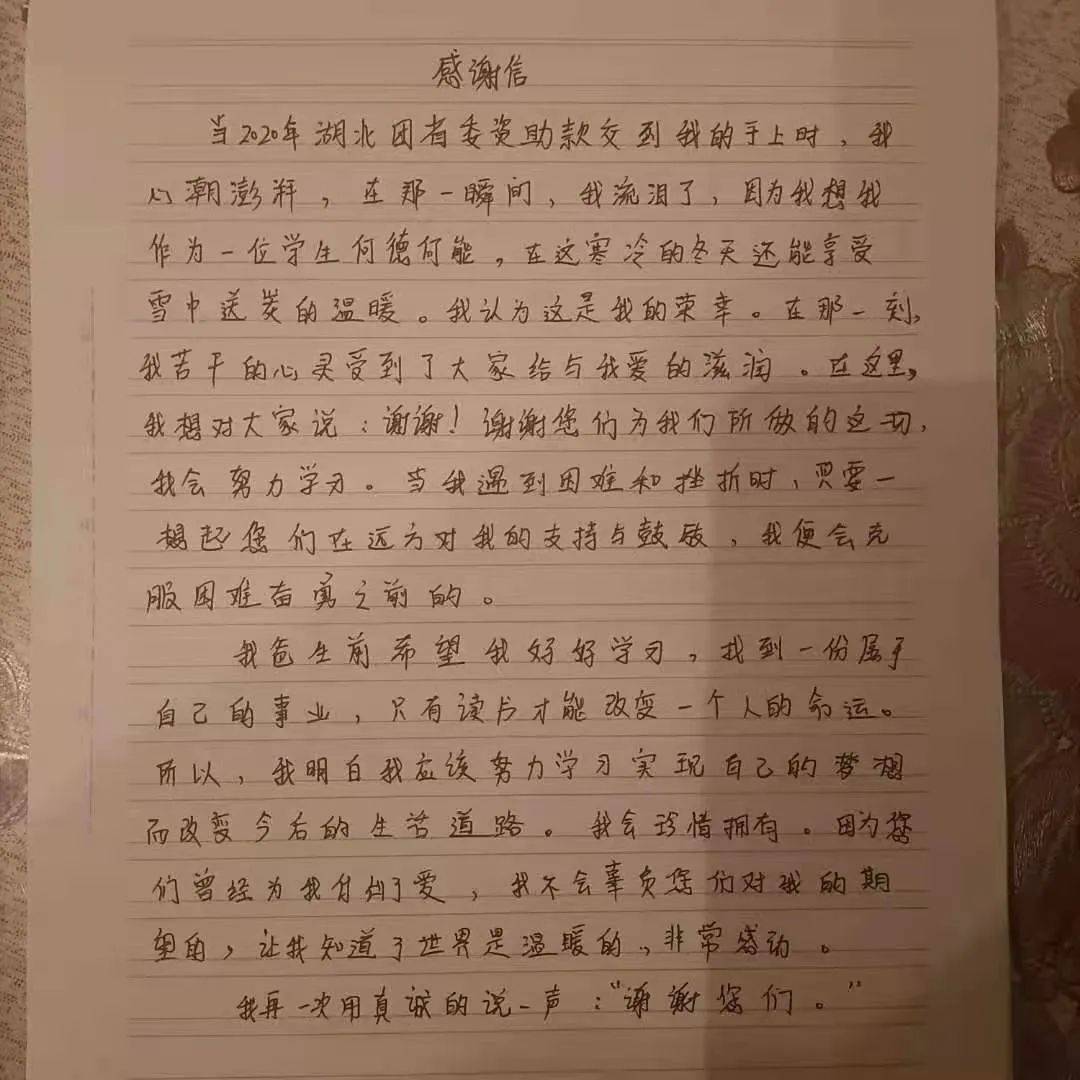 感谢信
当2020年湖北团省委资助款交到我的手上时，我
心潮澎湃，在那一瞬间，我流泪了，因为我想我
作为一位学生何德何能，在这寒冷的冬天还能享受
雪中送炭的温暖。我认为这是我的荣幸。在那一刻，
我苦干的心灵受到了大家给与我爱的滋润。在这里，
我想对大家说：谢谢！谢谢您们为我们所做的这一切，
我会努力学习。当我遇到困难和挫折时、只要一
想起您们在远方对我的支持与鼓励，我便会克
服困难奋勇之前的。
我爸生前希望我好好学习，找到一份属于
自己的事业，只有读书才能改变一个人的命运。
所以，我明白我应该努力学习实现自己的梦想
而改变今后的生活道路。我会珍惜拥有。因为您
们曾经为我付出了爱，我不会辜负您们对我的期
望的，让我知道了世界是温暖的，非常感动。
我再一次用真诚的说一声：“谢谢您们。”